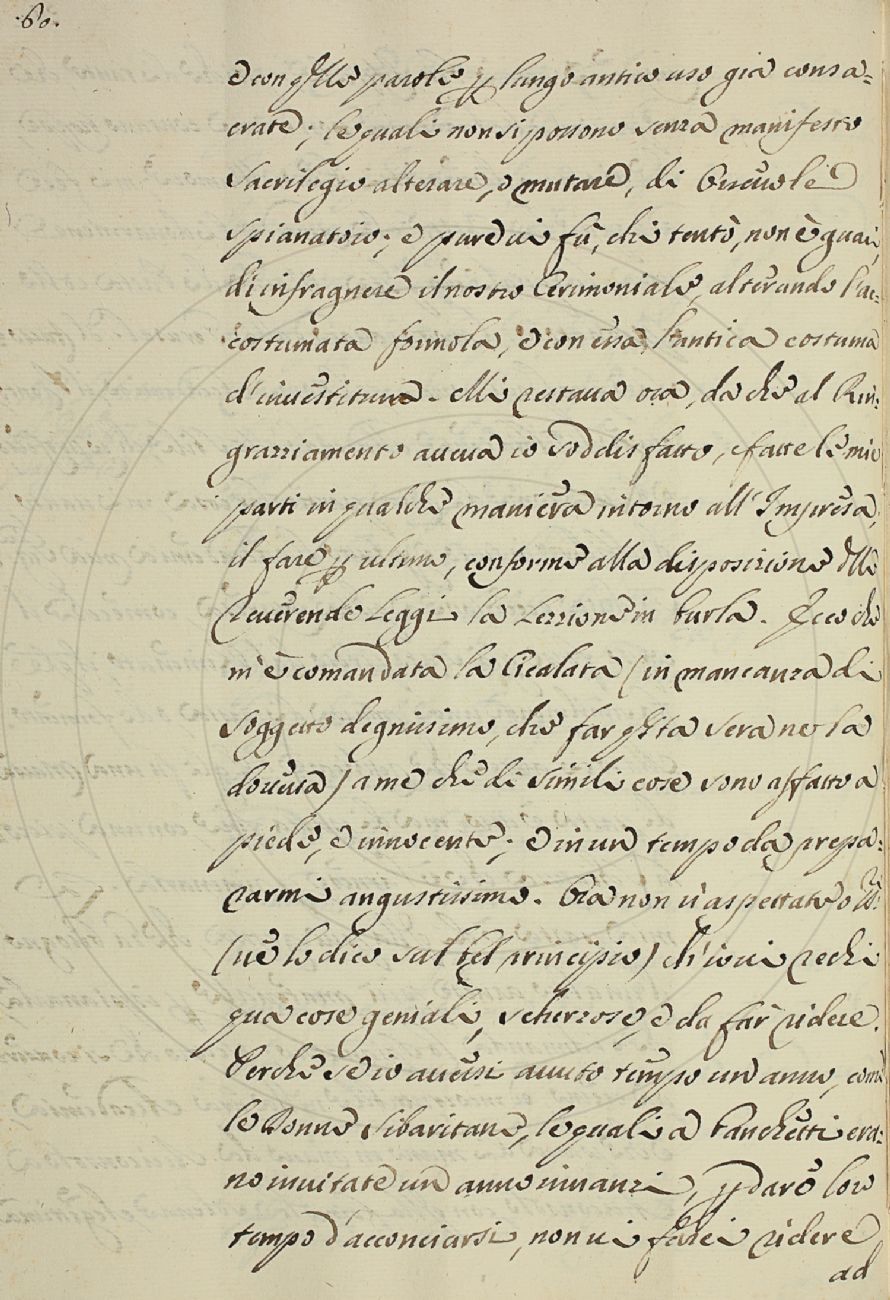 .60.
e con q̃lle parole p̱ lungo antico uso già consa=
crate; le quali non si possono senza manifesto
Sacrilegio alterare, o mutare, di Orrevole
Spianatoio; e pure vi fù, chi tentò, non è guari,
di infragnere il nostro Cerimoniale, alterando l'ac=
costumata formola, e con essa, l'antica costuma
d'investitura. Mi restava ora, da che al Rin=
grazziamento aveva io soddisfatto, e fatte le mie
parti in qualche maniera intorno all'Impresa,
il fare p̱ ultimo, conforme alla disposizione d̃lle
Reverende Leggi la Lezzione in burla. Ecco che
m'è comandata la Cicalata (in mancanza di
Soggetto degnissimo, che far q̃sta sera ne la
doveva) a me che di Simili cose sono affatto a
piede, e innocente; e in un tempo da prepa=
rarmi angustissimo. Ora non v'aspettate o
(ve lo dico sul bel principio) ch'io vi rechi
qua cose geniali, scherzose, e da far ridere.
Perche se io avessi avuto tempo un anno, come
le Donne Sibaritane, le quali a banchetti era=
no invitate un anno innanzi, p̱ dare loro
tempo d'acconciarsi, non vi farei ridere
ad